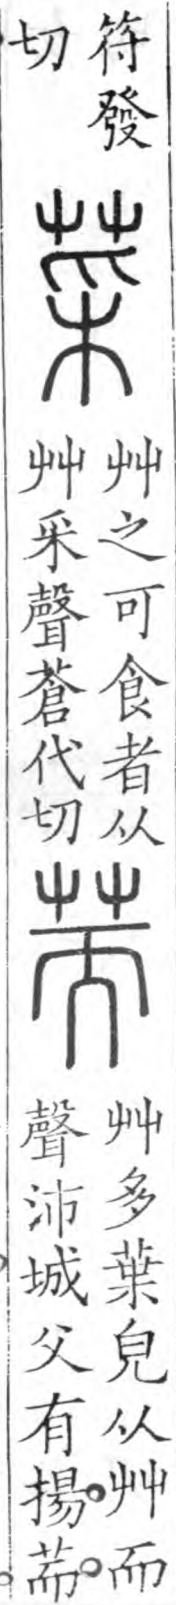 符發
切
菜
艸之可食者从
艸采聲蒼代切
荋
艸多葉皃从艸而
聲沛城父有揚荋